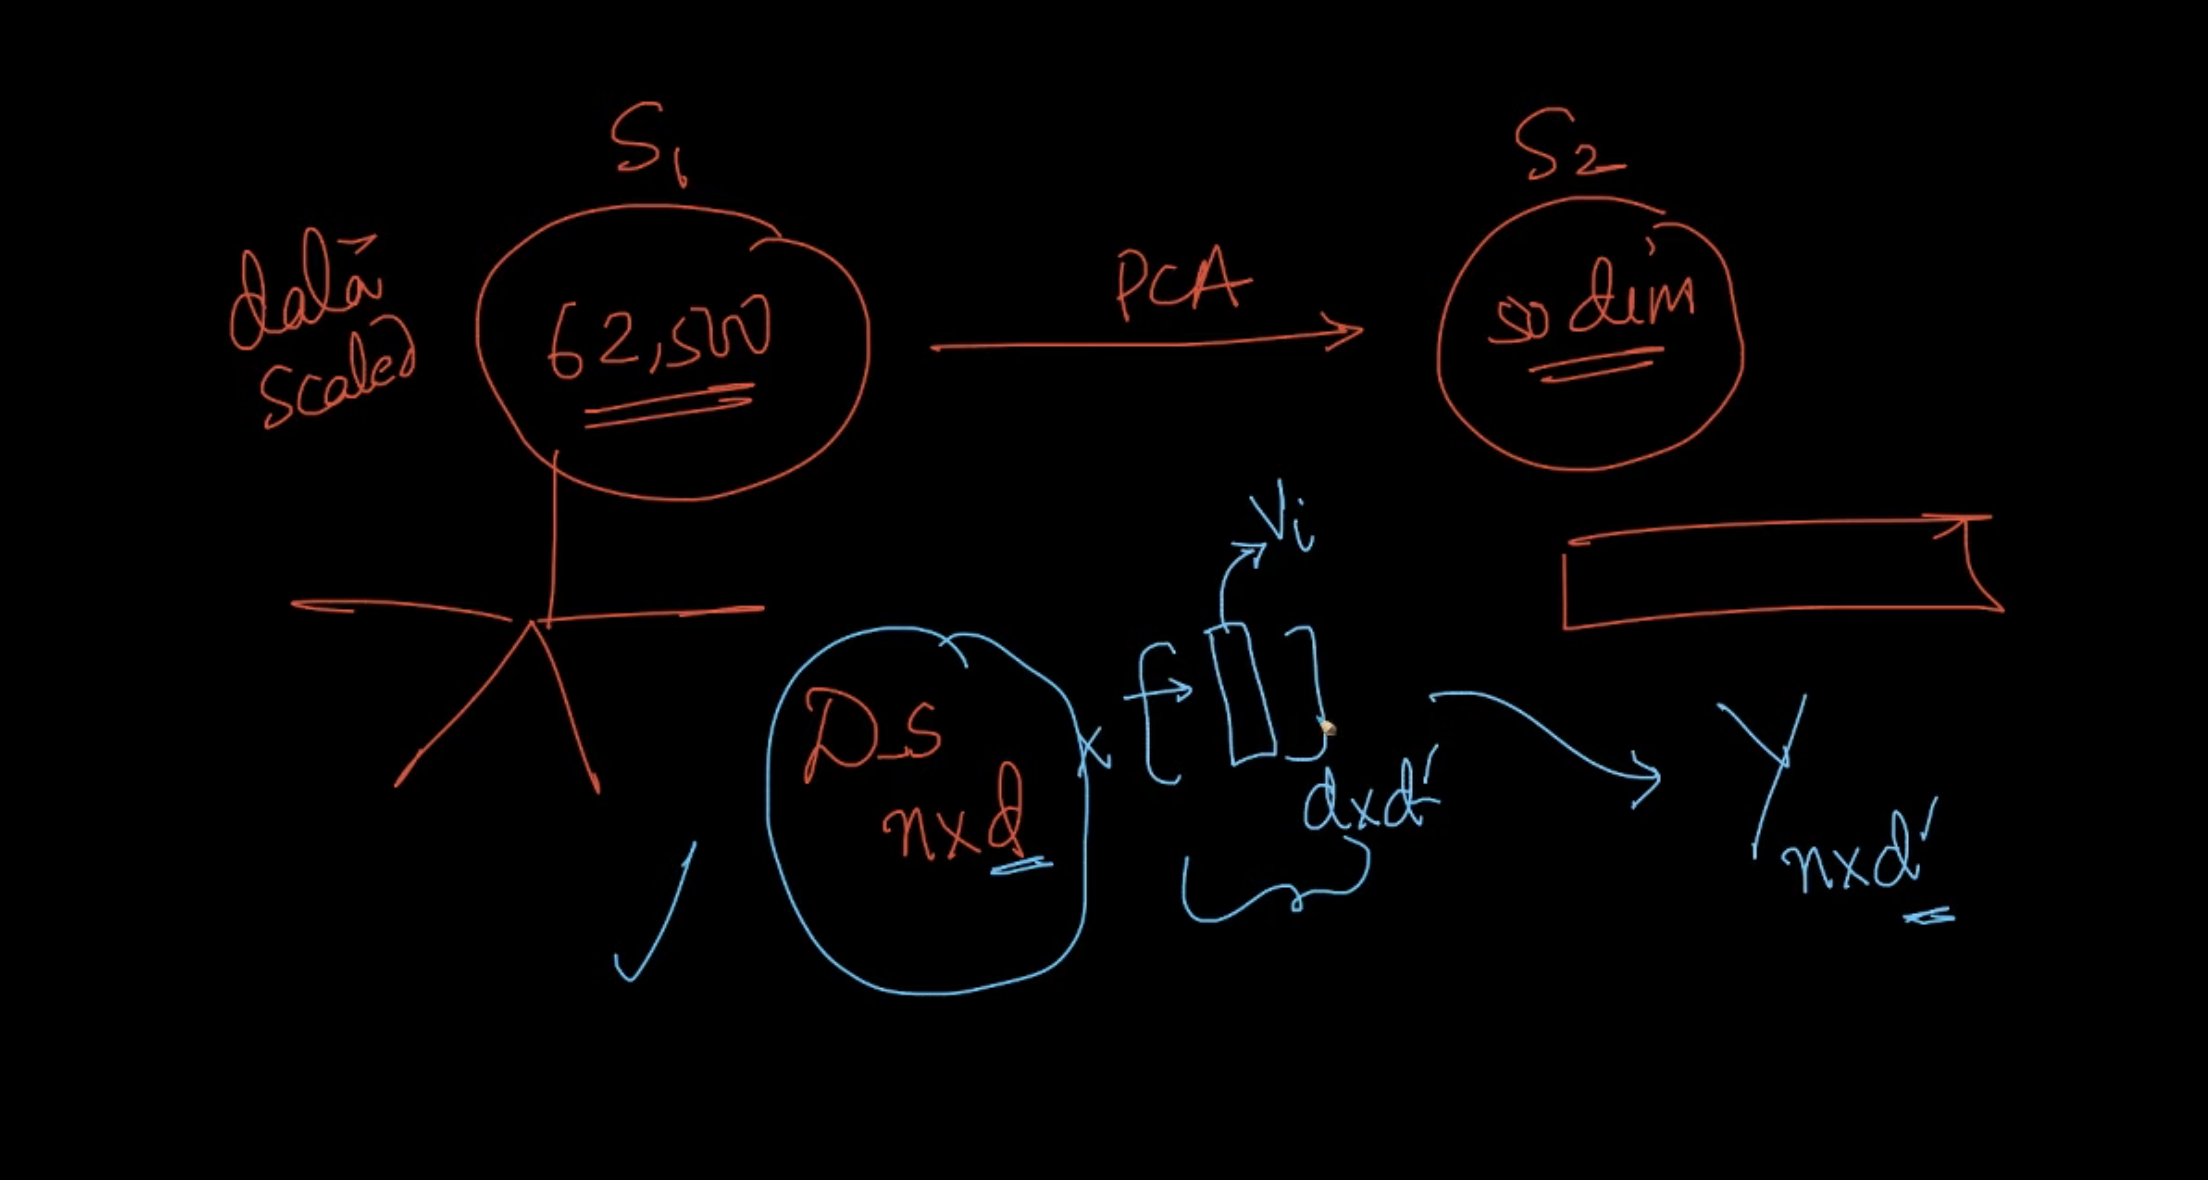 S1
S2
data
scaled
62,500
PCA
50 dim
Vi
D_S
n×d
×
d×d'
Y
n×d'